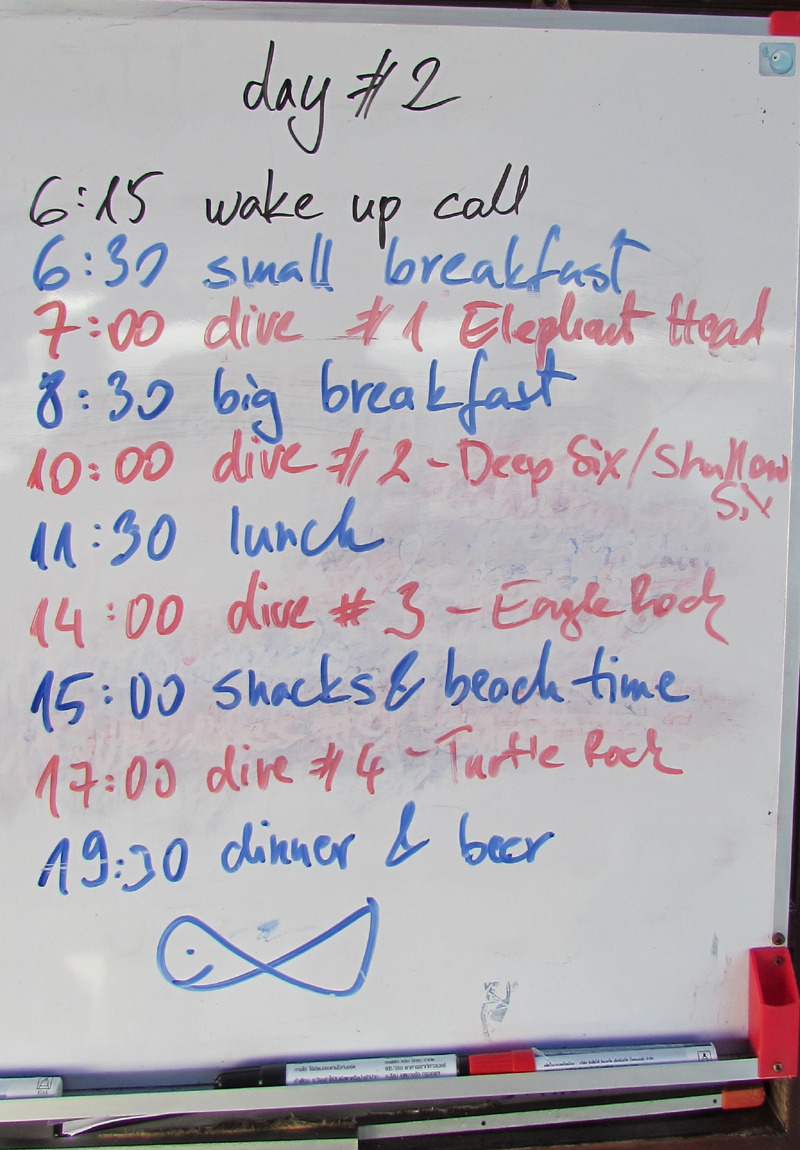 day #2
6:15 wake up call
6:30 small breakfast
7:00 dive #1 Elephant Head
8:30 big breakfast
10:00 dive #2 - Deep Six/Shallow
Six
11:30 lunch
14:00 dive #3 - Eagle Rock
15:00 snacks & beach time
17:00 dive #4 - Turtle Rock
19:30 dinner & beer